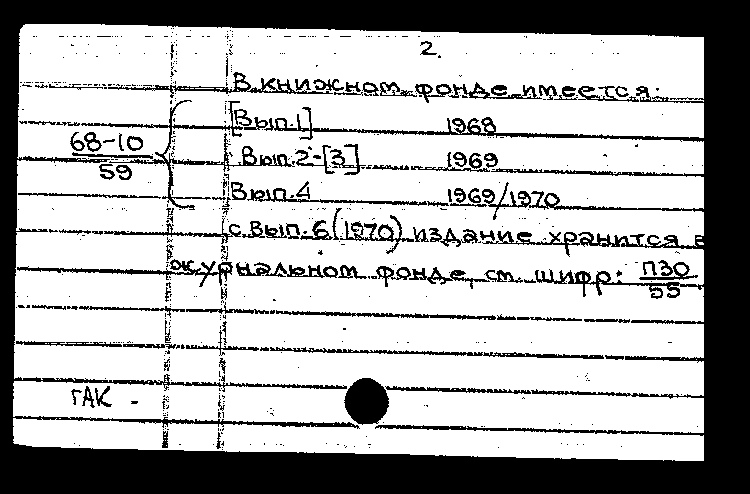 2.
В книжном фонде имеется:
[Вып.1] 1968
68-10
59
Вып.2-[3] 1969
Вып.4 1969/1970
с вып.6(1970) издание хранится в
журнальном фонде, см. шифр: П30
55
ГАК -